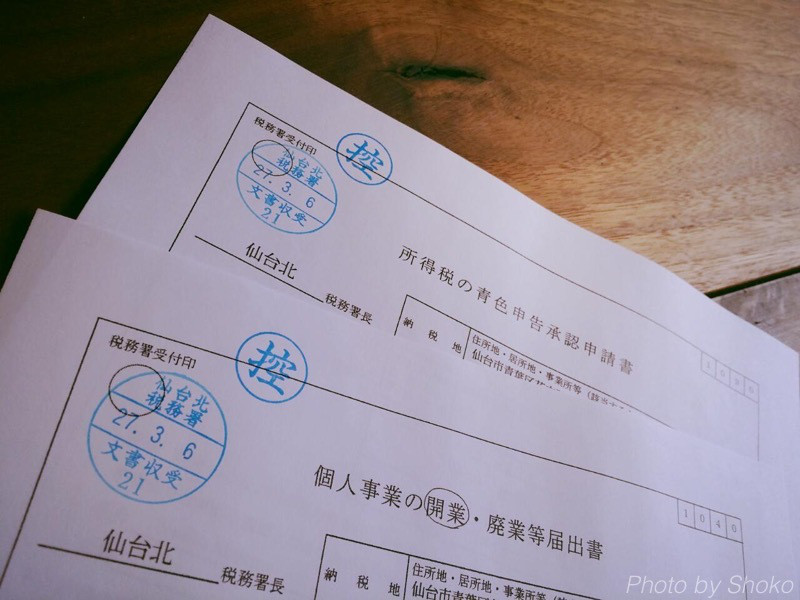 税務署受付印
控
仙台北
税務署
27.3.6
文書収受
21
仙台北
税務署長
所得税の青色申告承認申請書
1090
納税地
住所地・居所地・事業所等（該当する
仙台市青葉区
税務署受付印
控
仙台北
税務署
27.3.6
文書収受
21
仙台北
税務署長
個人事業の開業・廃業等届出書
1040
納税地
住所地・居所地・事業所等
仙台市青葉区
Photo by Shoko